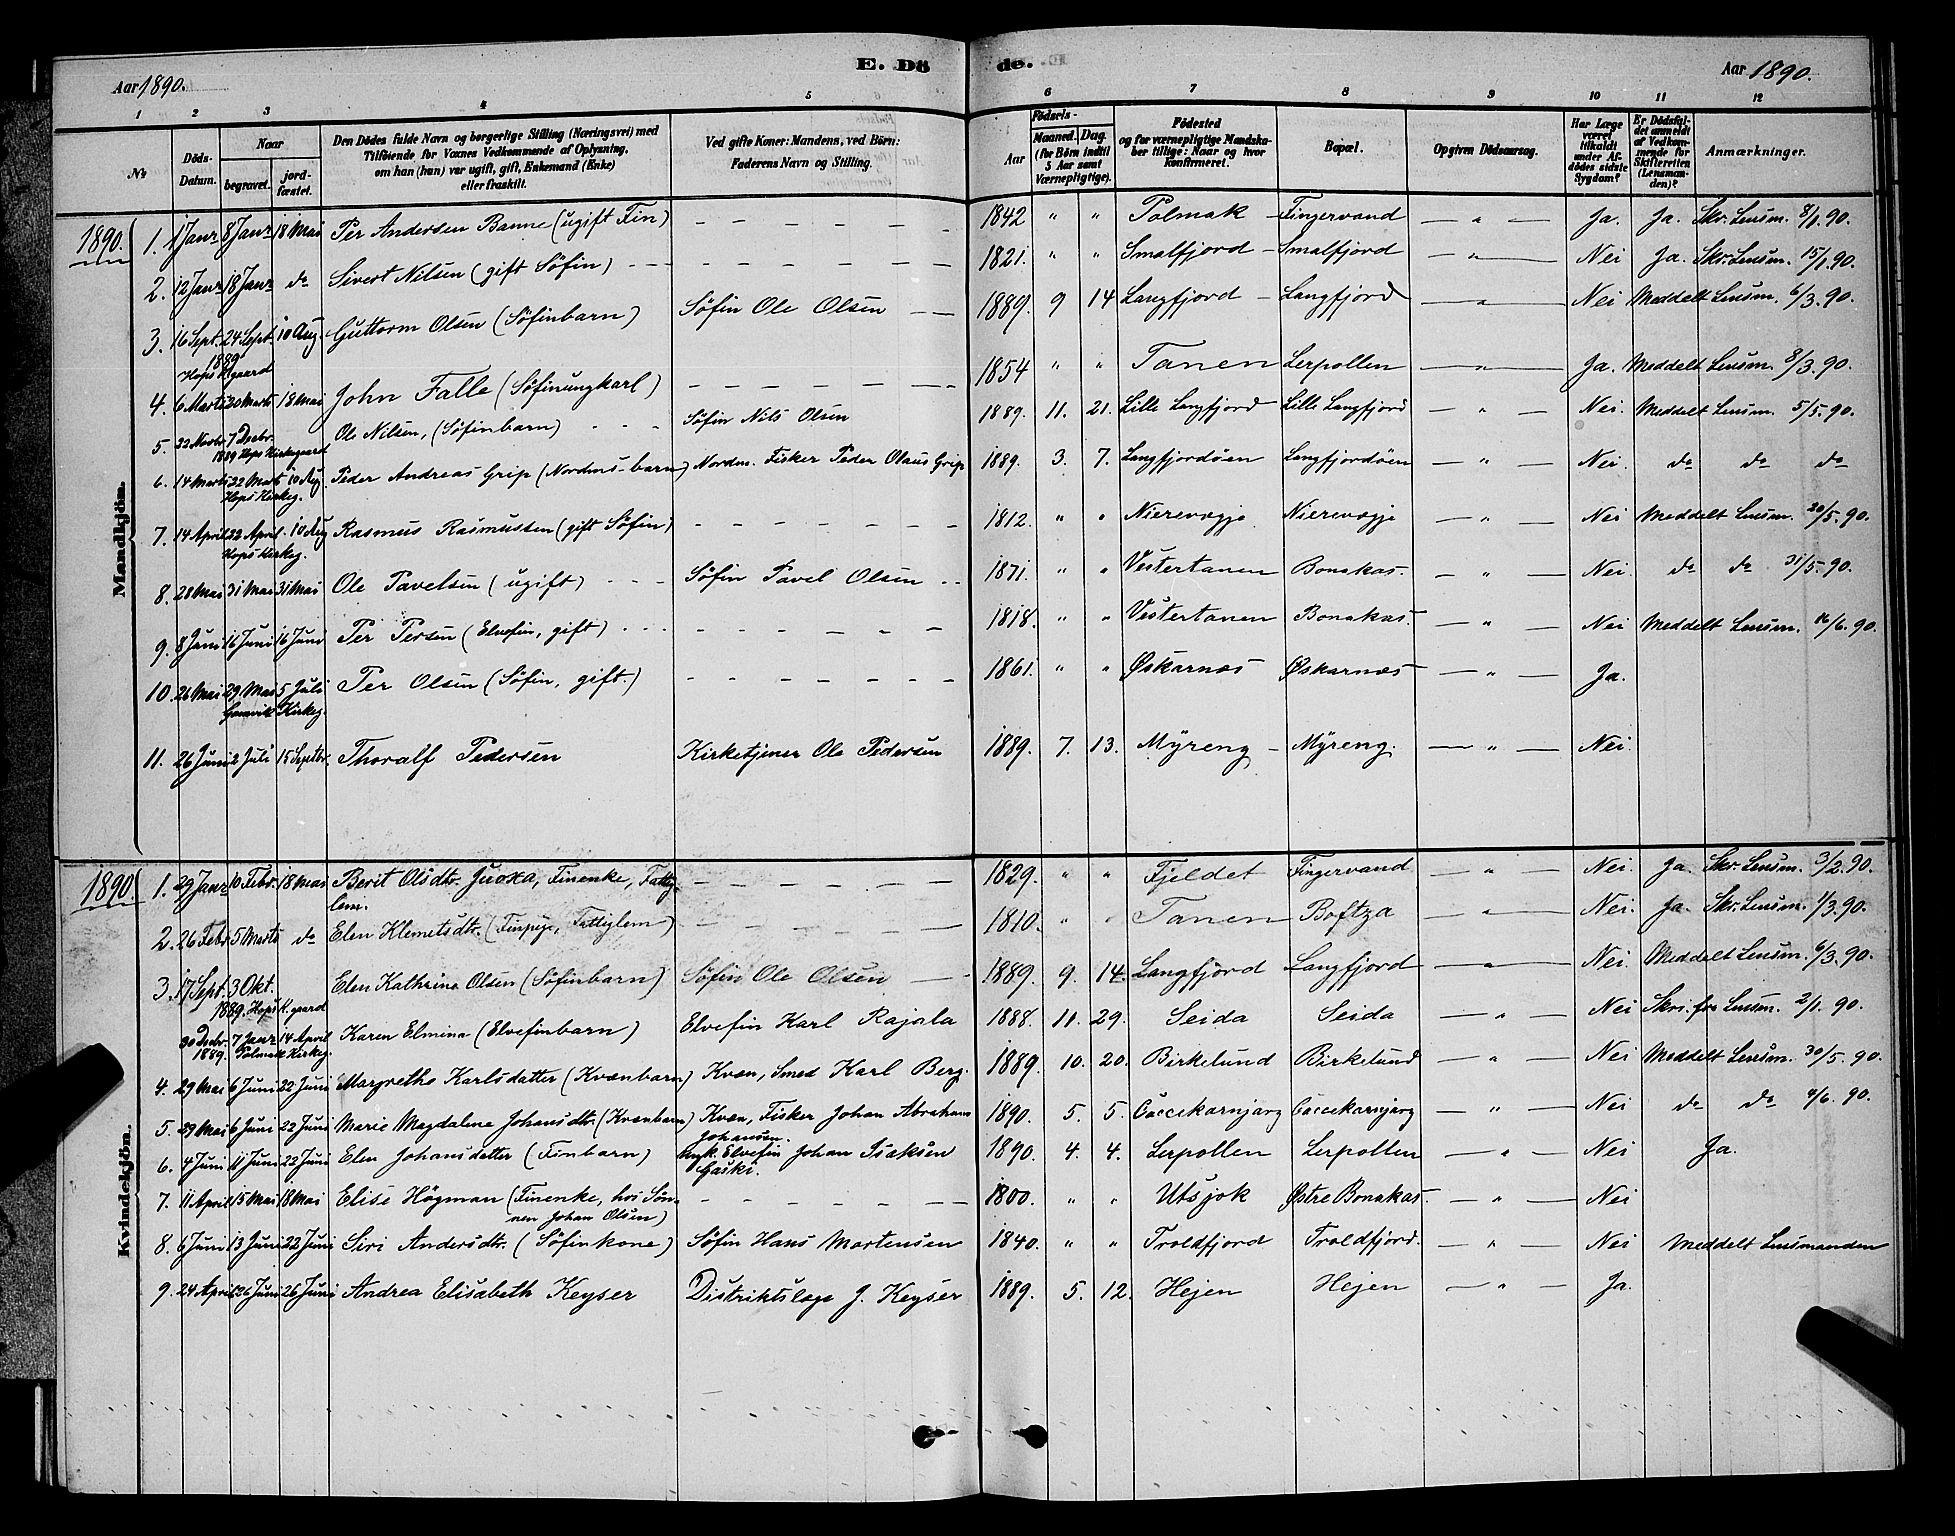 Aar 1890.
E. Dö
de.
Aar 1890.
1 2 3 4 5 6 7 8 9 10 11 12
№
Döds-Datum.
Naar
begravet.
jord-fæstet.
Den Dödes fulde Navn og borgerlige Stilling (Næringsvei) med
Tilföiende for Voxnes Vedkommende af Oplysning,
om han (hun) var ugift, gift, Enkemand (Enke)
eller fraskilt.
Ved gifte Koner: Mandens, ved Börn:
Faderens Navn og Stilling.
Födsels-
Aar
Maaned. Dag.
(for Börn indtil
5 Aar samt
Værnepligtige).
Födested
og for værnepligtige Mandska-
ber tillige: Naar og hvor
konfirmeret.
Bopæl.
Opgiven Dödsaarsag.
Har Læge
været
tilkaldt
under Af-
dödes sidste
Sygdom?
Er Dödsfal-
det anmeldt
af Vedkom-
mende for
Skifteretten
(Lensman-
den)?
Anmærkninger.
Mandkjön.
1890. 1. 1 Janr 8 Janr 18 Mai Per Andersen Banne (ugift Fin) – – – – – – 1842 " " Polmak – Fingervand — " — Ja. Ja. Skr. Lensm. 8/1.90.
2. 12 Janr 18 Janr do Sivert Nilsen (gift Söfin) – – – – – – – – 1821. " " Smalfjord – Smalfjord — " — Nei Ja. Skr. Lensm. 15/1.90.
3. 16 Sept. 24 Sept. 10 Aug. Guttorm Olsen (Söfinbarn) Söfin Ole Olsen — 1889. 9 14 Langfjord – Langfjord — " — Nei Meddelt Lensm. 6/3.90.
1889
Hops K.gaard
4. 6 Marts 20 Marts 18 Mai John Falle (Söfinungkarl) – – – – – – 1854 " " Tanen Lerpollen — " — Ja. Meddelt Lensm. 8/3.90.
5. 22 Novbr. 7 Decbr. Ole Nilsen, (Söfinbarn) – – – Söfin Nils Olsen 1889. 11. 21. Lille Langfjord Lille Langfjord — " — Nei. Meddelt Lensm. 5/5.90.
1889 Hops Kirkegaard
6. 14 Marts 22 Marts 10 Aug. Peder Andreas Grip (Nordms-barn) Nordm. Fisker Peder Olaus Grip 1889. 3. 7. Langfjordöen Langfjordöen — " — Nei. do do do
Hops Kirkeg.
7. 14 April 22 April. 10 Aug Rasmus Rasmussen (gift Söfin) – – – – – – 1812. " " Nierevægje Nierevægje — " — Nei Meddelt Lensm. 20/5.90.
Hops Kirkeg.
8. 28 Mai 31 Mai 31 Mai Ole Pavelsen (ugift) – – – Söfin Pavel Olsen – – 1871. " " Vestertanen Bonakas. — " — Nei. do do 31/5.90.
9. 8 Juni 16 Juni 16 Juni Per Persen (Elvefin, gift) – – – – – – – – 1818. " " Vestertanen Bonakas. — " — Nei Meddelt Lensm. 16/6.90.
10. 26 Mai 29 Mai 5 Juli Per Olsen (Söfin, gift.) – – – – – – 1861. " " Øskarnæs Øskarnæs — " — Ja.
Gamvik Kirkeg.
11. 26 Juni 2 Juli 15 Septbr. Thoralf Pedersen Kirketjener Ole Pedersen 1889. 7. 13. Mÿreng – Mÿreng. — " — Nei.
Kvindekjön.
1890. 1. 29 Janr 10 Febr. 18 Mai Berit Olsdtr. Juoxa, Finenke, Fattig- – – – – – – 1829. " " Fjeldet Fingervand — " — Nei. Ja. Skr. Lensm. 3/2.90.
lem.
2. 26 Febr 5 Marts do Elen Klemetsdtr. (Finpige, Fattiglem) – – – – – – 1810. " " Tanen Boftza — " — Nei. Ja. Skr. Lensm. 1/3.90.
3. 17 Sept. 3 Okt. Elen Kathrina Olsen (Söfinbarn) Söfin Ole Olsen — 1889. 9. 14. Langfjord Langfjord — " — Nei. Meddelt Lensm. 6/3.90.
1889. Hops K.gaard
30 Decbr. 7 Janr 14 April Karen Elmina (Elvefinbarn) Elvefin Karl Rajala 1888. 11. 29. Seida Seida — " — Nei Skr. fra Lensm. 2/1.90.
1889. Polmak Kirkeg.
4. 29 Mai 6 Juni 22 Juni Margrethe Karlsdatter (Kvænbarn) Kvæn, Smed Karl Berg. 1889. 10. 20. Birkelund Birkelund — " — Nei Meddelt Lensm. 30/5.90.
5. 29 Mai 6 Juni 22 Juni Marie Magdalena Johansdtr. (Kvænbarn) Kvæn, Fisker Johan Abraham 1890. 5. 5. Caccekarnjarg Caccekarnjarg — " — Nei do do 4/6.90.
Johansen.
6. 4 Juni 11 Juni 22 Juni Elen Johansdatter (Finbarn) Ungk. Elvefin Johan Isaksen 1890. 4. 4. Lerpollen Lerpollen — " — Nei Ja.
Gaski.
7. 11 April 15 Mai 18 Mai Elise Högman (Finenke, hos Søn- – – – – – – 1800. " " Utsjok Østre Bonakas. — " — Nei
nen Johan Olsen)
8. 6 Juni 13 Juni 22 Juni Siri Andersdtr. (Söfinkone) Söfin Hans Mortensen 1840. " " Troldfjord Troldfjord. — " — Nei Meddelt Lensmanden
9. 24 April 26 Juni 26 Juni Andrea Elisabeth Keyser Distriktslæge J. Keyser 1889. 5. 12. Hejen Hejen — " — Ja.